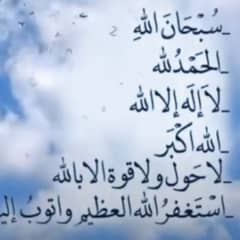 _سُبْحَانَ اللهِ
_الحَمْدُ لله
_لاَ إلَه إلا الله
_الله اكْبَر
_لا حَول ولا قوة الا بالله
_اسْتَغفرُ الله العظيم واتوبُ إلي